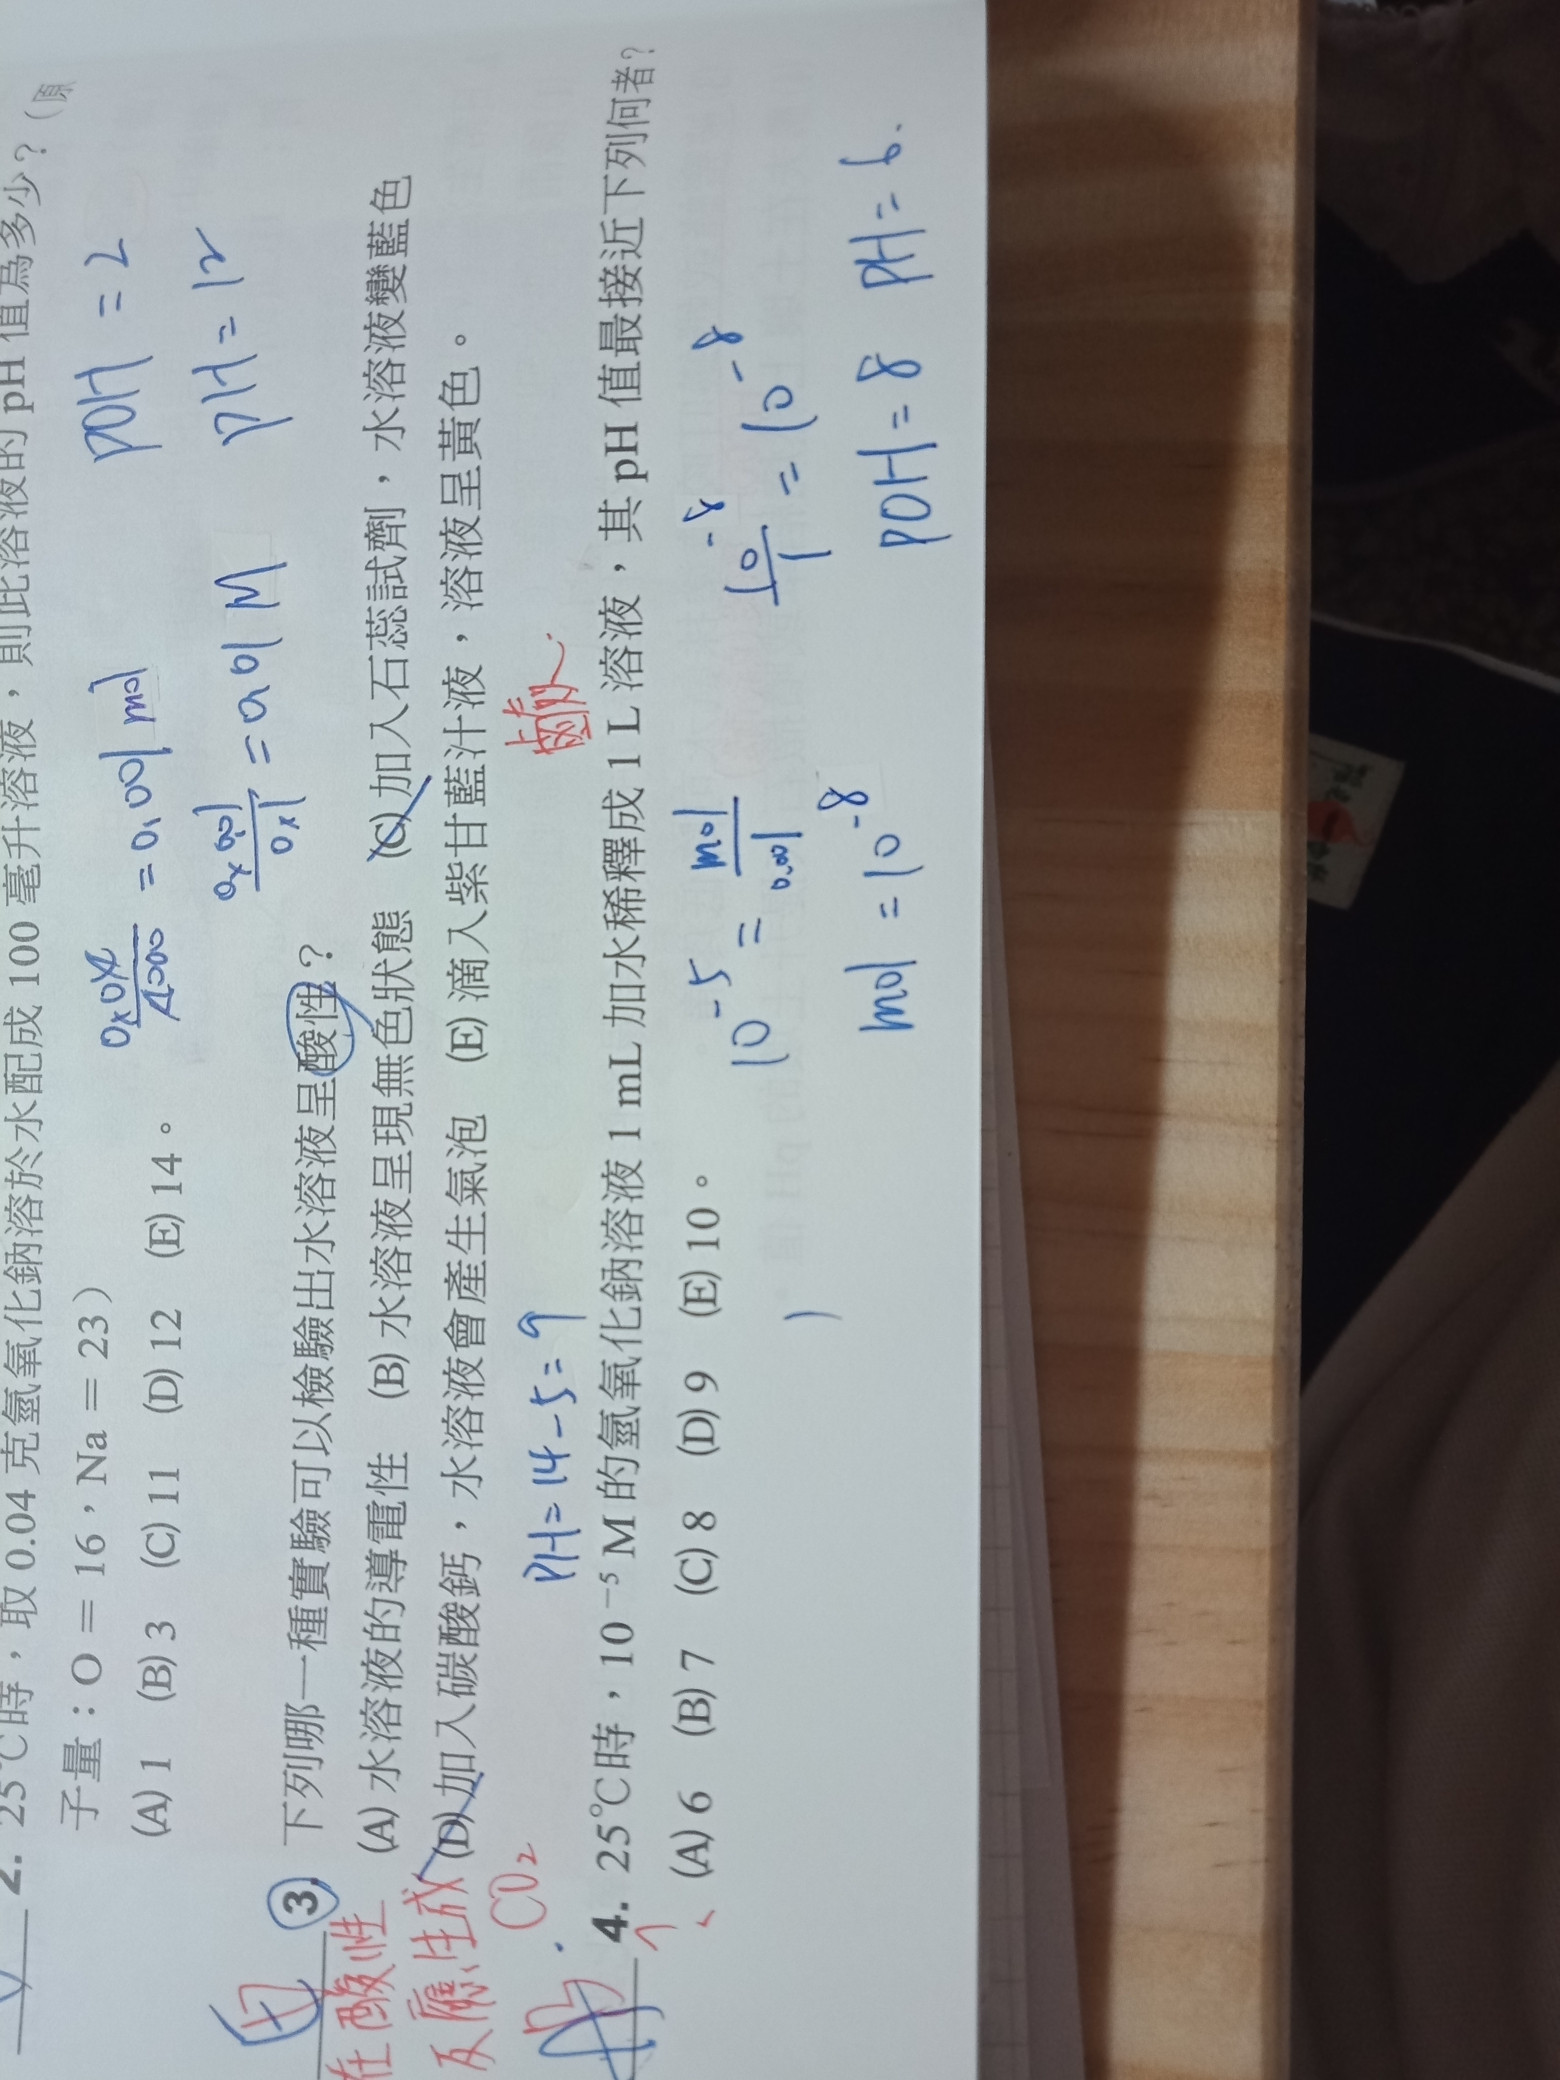 2. 25℃時，取 0.04 克氫氧化鈉溶於水配成 100 毫升溶液，則此溶液的 pH 值為多少？（原
子量：O = 16，Na = 23）
(A) 1 (B) 3 (C) 11 (D) 12 (E) 14。
= 0.001 mol
POH = 2
= 0.01 M
PH = 12
3. 下列哪一種實驗可以檢驗出水溶液呈酸性？
(A) 水溶液的導電性 (B) 水溶液呈現無色狀態 (C) 加入石蕊試劑，水溶液變藍色
(D) 加入碳酸鈣，水溶液會產生氣泡 (E) 滴入紫甘藍汁液，溶液呈黃色。
在酸性
反應生成
CO2
PH = 14 - 5 = 9
鹼
4. 25℃時，10⁻⁵ M 的氫氧化鈉溶液 1 mL 加水稀釋成 1 L 溶液，其 pH 值最接近下列何者？
(A) 6 (B) 7 (C) 8 (D) 9 (E) 10。
10⁻⁵ = mol / 0.001
10⁻⁸ / 1 = 10⁻⁸
mol = 10⁻⁸
POH = 8 PH = 6.